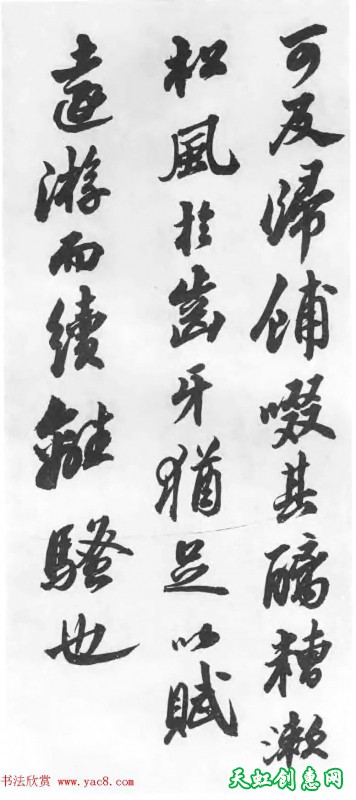 可反歸餔啜其醨糟漱
松風於齒牙猶足以賦
遠游而續離騷也
书法欣赏 www.yac8.com
天虹创惠网